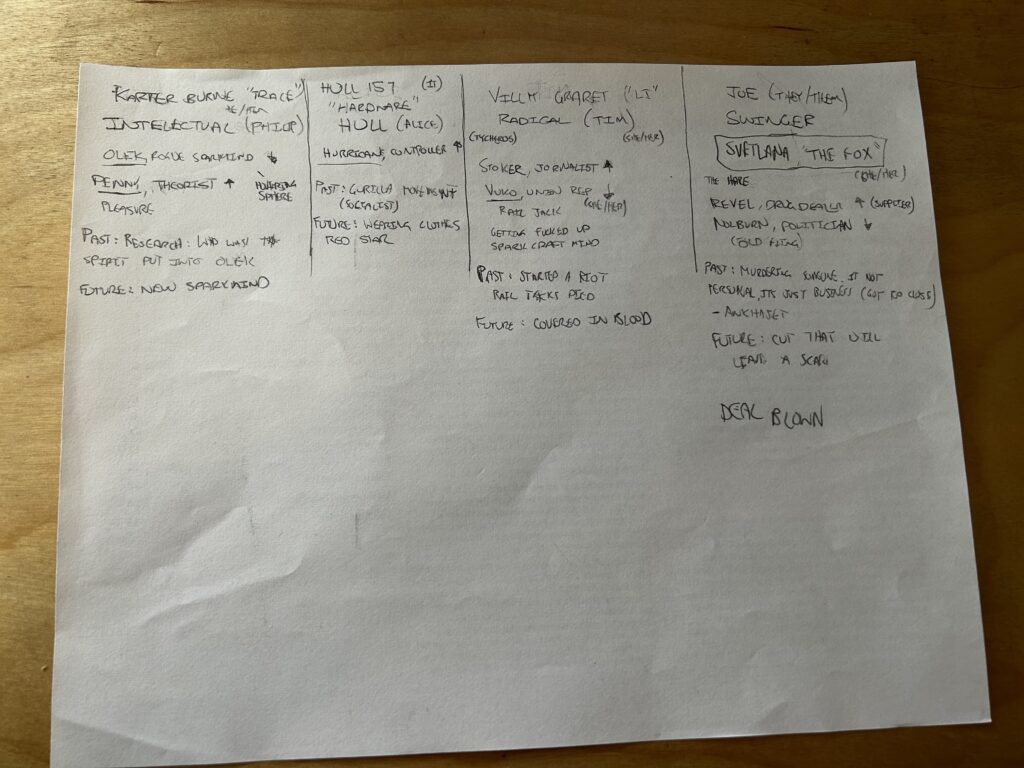 KARTER BURNE "TRACE"
HE/HIM
INTELECTUAL (PHILIP)
OLEK, ROGUE SPARKMIND ↓
PENNY, THEORIST ↑
HOVERING
SPHERE
PLEASURE
PAST: RESEARCH: WHO WAS THE
SPIRIT PUT INTO OLEK
FUTURE: NEW SPARKMIND
HULL 157 (IT)
"HARDWARE"
HULL (ALICE)
HURRICANE, CONTROLLER ↑
PAST: GURILLA MOVEMENT
(SOCIALIST)
FUTURE: WEARING CLOTHES
RED STAR
VILLM GRARET ("LI")
RADICAL (TIM)
(TYCHEROS) (SHE/HER)
STOKER, JORNALIST ↑
VUKO, UNION REP ↓
(SHE/HER)
RAIL JACK
GETTING FUCKED UP
SPARK CRAFT MIND
PAST: STARTED A RIOT
RAIL JACKS
FUTURE: COVERED IN BLOOD
JOE (THEY/THEM)
SWINGER
SVETLANA, "THE FOX"
(SHE/HER)
THE HARE
REVEL, DRUG DEALER ↑ (SUPPLIER)
POLITICIAN ↓
(OLD FLING)
PAST: MURDERING SOMEONE. IT NOT
PERSONAL, ITS JUST BUSINESS (GOT TO CLOSE)
- ANKHAJET
FUTURE: CUT THAT WILL
LEAVE A SCAR
DEAL BLOWN